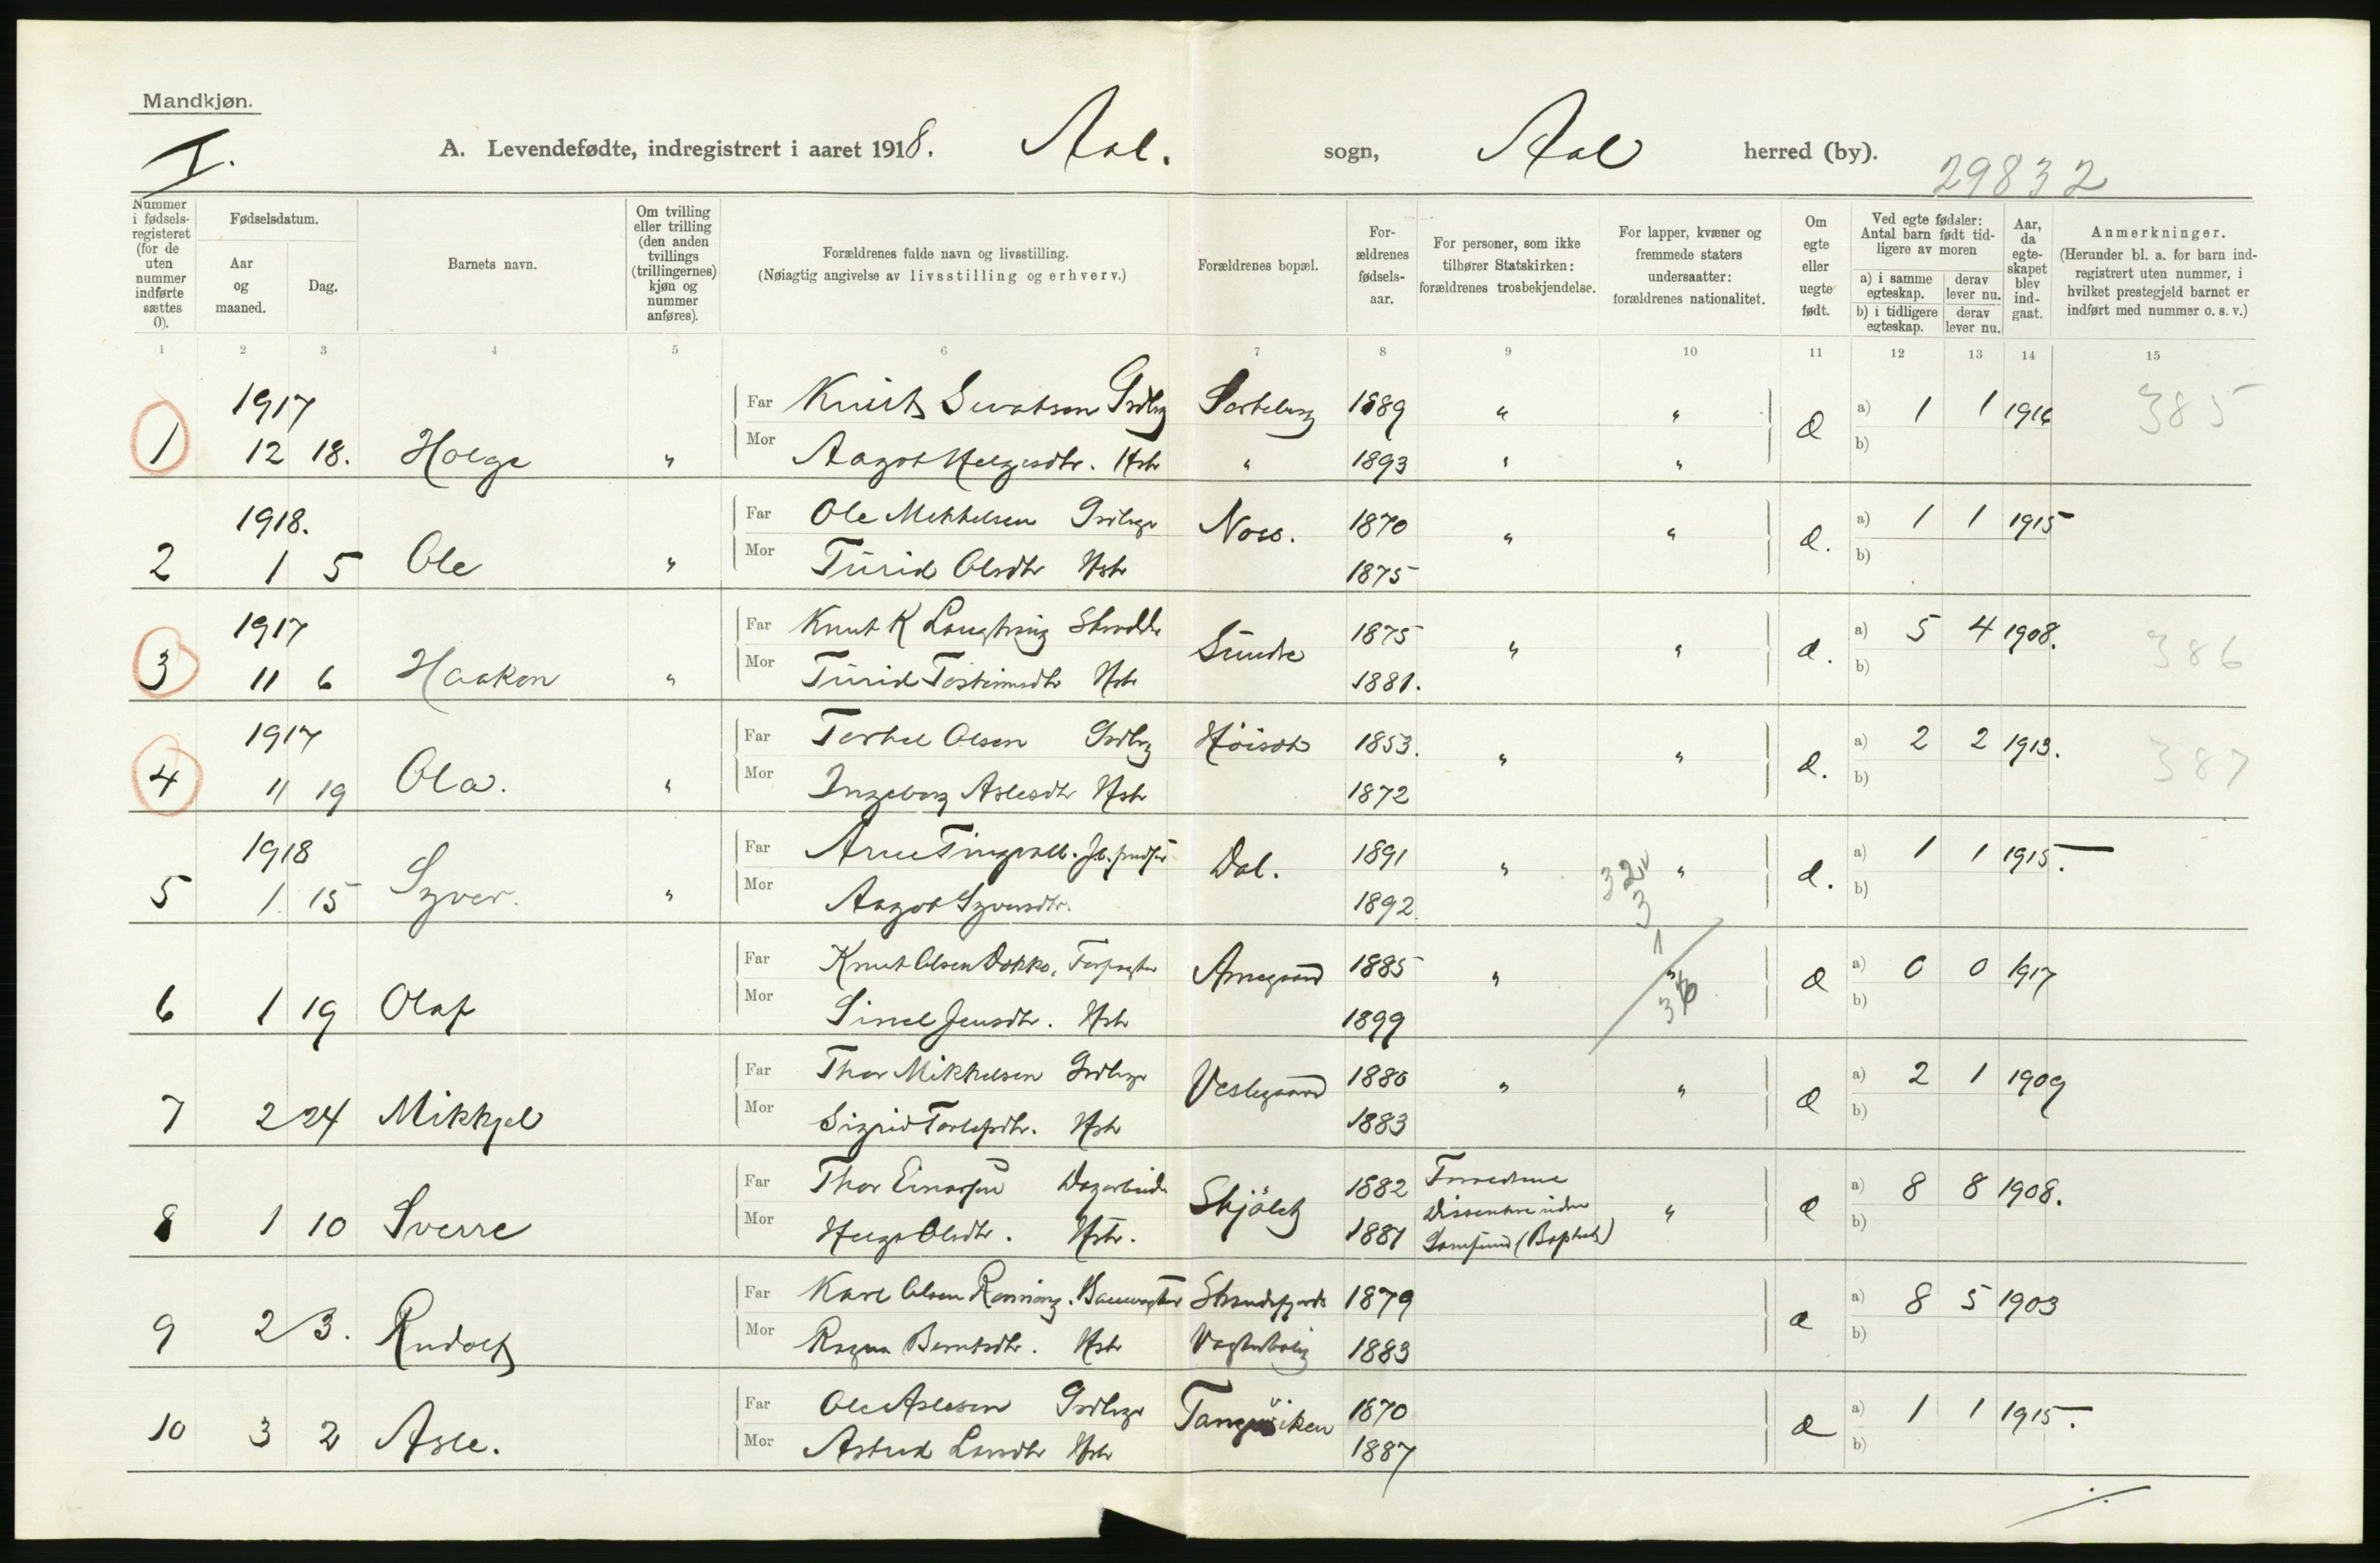 Mandkjøn.
I.
A. Levendefødte, indregistrert i aaret 1918. Aal. sogn, Aal herred (by).
29832
Nummer i fødsels-registeret (for de uten nummer indførte sættes 0).
Fødselsdatum.
Aar og maaned.
Dag.
Barnets navn.
Om tvilling eller trilling (den anden tvillings (trillingernes) kjøn og nummer anføres).
Forældrenes fulde navn og livsstilling.
(Nøiagtig angivelse av livsstilling og erhverv.)
Forældrenes bopæl.
For-ældrenes fødsels-aar.
For personer, som ikke tilhører Statskirken: forældrenes trosbekjendelse.
For lapper, kvæner og fremmede staters undersaatter: forældrenes nationalitet.
Om egte eller uegte født.
Ved egte fødsler: Antal barn født tid-ligere av moren
a) i samme egteskap.
derav lever nu.
b) i tidligere egteskap.
derav lever nu.
Aar, da egte-skapet blev ind-gaat.
Anmerkninger.
(Herunder bl. a. for barn ind-registrert uten nummer, i hvilket prestegjeld barnet er indført med nummer o. s. v.)
1 2 3 4 5 6 7 8 9 10 11 12 13 14 15
1917
Far Knut Grdbr 1889 " " a) 1 1 1916 385
1 12 18. Helge " Mor Aagot Helgesdtr. Hstr " 1893 " " b)
1918.
Far Ole Mekkelsen Grdbrgr Noss. 1870 " " a) 1 1 1915
2 1 5 Ole " Mor Turid Olsdtr Hstr 1875 b)
1917
Far Knut K Sundre 1875 " " a) 5 4 1908. 386
3 11 6 Haakon " Mor Turid Hstr 1881. b)
1917
Far Torkel Olsen Grdbr 1853. " " a) 2 2 1913. 387
4 11 19 Ola. " Mor Ingeborg Aslesdtr Hstr 1872 b)
1918
Far Arne Tingvoll. Dal. 1891 " " a) 1 1 1915.
5 1 15 Syver. " Mor Aagot Syversdtr. 1892. b)
32
3
1
36
Far Knut Olsen Dokko. Forpagter Arnegaard 1885 " " a) 0 0 1917
6 1 19 Olaf Mor Hstr 1899 b)
Far Thor Mikkelsen Grdbrgr Veslegaard 1880 " " a) 2 1 1909
7 2 24 Mikkjel Mor Sigrid Torleifsdtr. Hstr 1883 b)
Far Thor Einarsen Dagarbeider 1882 Forældrene a) 8 8 1908.
8 1 10 Sverre Mor Helga Olsdtr. Hstr. 1881 Samfund (Baptist) " b)
Far Karl Olsen Rønning. Banevogter 1879 a) 8 5 1903
9 2 3. Rudolf Mor Ragna Berntsdtr. Hstr Vogterbolig 1883 b)
Far Ole Aslesen Grdbrgr 1870 a) 1 1 1915.
10 3 2 Asle. Mor Astrid Larsdtr Hstr 1887 b)